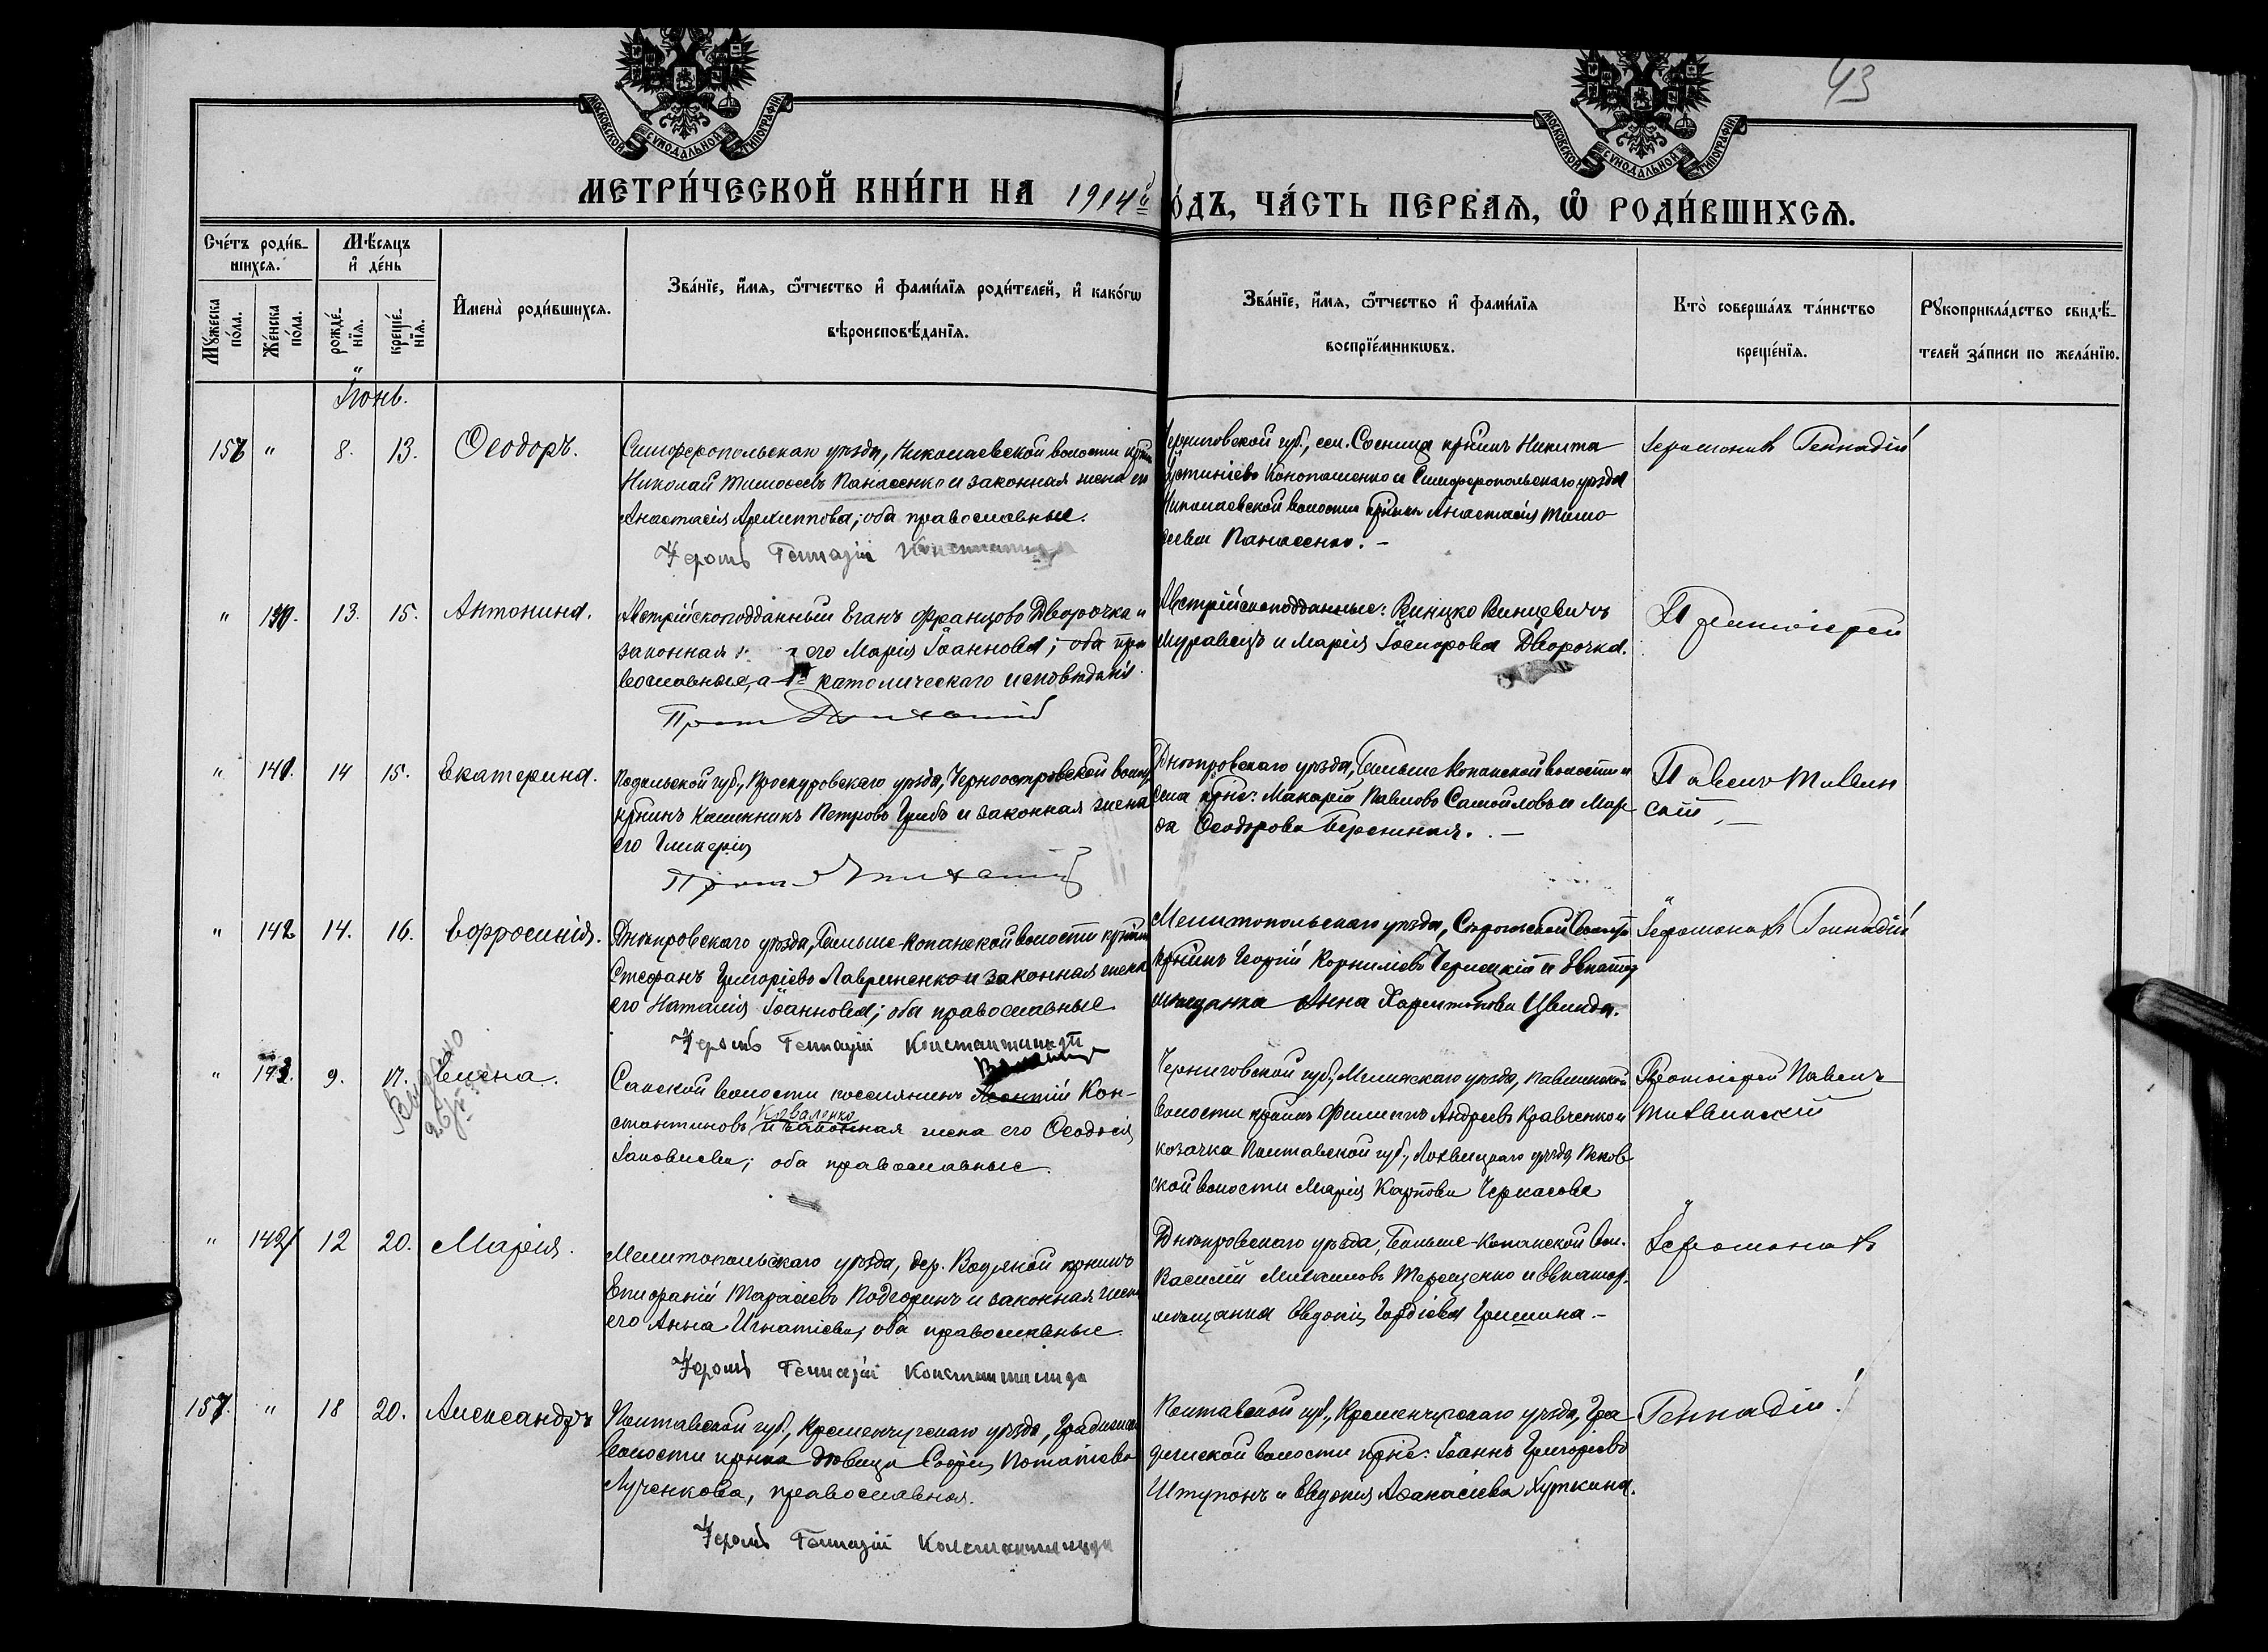 43
МОСКОВСКОЙ СѴНОДАЛЬНОЙ ТИПОГРАФІИ
МОСКОВСКОЙ СѴНОДАЛЬНОЙ ТИПОГРАФІИ
МЕТРИ́ЧЕСКОЙ КНИ́ГИ НА 1914й
О́ДЪ, ЧА́СТЬ ПЕРВАѦ, Ѡ РОДИ́ВШИХСѦ.
Сче́тъ роди́в-
шихсѧ.
Мѣ́сяцъ
и҆ де́нь
Мꙋ́жеска
по́ла.
Же́нска
по́ла.
рожде́-
нїѧ.
креще́-
нїѧ.
И҆мена̀ роди́вшихсѧ.
Зва́нїе, и҆́мя, ѻ҆́тчество и҆ фами́лїя роди́телей, и҆ како́гѡ
вѣроисповѣ́данїя.
Зва́нїе, и҆́мя, ѻ҆́тчество и҆ фами́лїя
воспрїе́мникѡвъ.
Кто̀ соверша́лъ та́инство
креще́нїѧ.
Рꙋкоприкла́дство свидѣ́-
телей за́писи по жела́нїю.
Іюнь.
156 " 8. 13. Ѳеодоръ.
Симферопольскаго уѣзда, Николаевской волости
Николай Тимоѳеевъ Панасенко и законная жена его
Анастасія Архиппова; оба православные.
Іером Геннадій
Черниговской губ., сел. Сосница крнинъ Никита
Устиніевъ Конопатенко и Симферопольскаго уѣзда
Николаевской волости Анастасія Тимо
ѳеева Панасенко. -
Іеромонахъ Геннадій
" 13. 15. Антонина.
Австрійскоподданный Еганъ Францовъ Дворочка и
законная его Марія Іоаннова; оба пра
вославные, а католическаго исповѣданія.
Австрійскоподданные: Винцко Винцевичъ
Муравецъ и Марія Іосифова Дворочка.
Протоіерей
" 141. 14 15. Екатерина.
Подольской губ., Проскуровскаго уѣзда, Черноостровской
крнинъ Петровъ Грибъ и законная жена
его Гликерія
Днѣпровскаго уѣзда, Больше Копанской волости и
села Макарій Павловъ Самойловъ и Мар
ѳа Ѳеодорова
Павелъ Тихвин
скій, -
" 142 14. 16. Евфросинія.
Днѣпровскаго уѣзда, Больше-Копанской волости крнинъ
Стефанъ Григоріевъ Лавриненко и законная жена
его Наталія Іоаннова; оба православные
Іером Геннадій Константиниди
Мелитопольскаго уѣзда,
крнинъ Георгій Корниліевъ и Евпатор
мѣщанка Анна Харитонова
Іеромонахъ Геннадій
" 143. 9. 17. Елена.
Сакской волости поселянинъ Леонтій Кон-
стантиновъ Коваленко и законная жена его Ѳеодосія
Іаковлева; оба православные.
Черниговской губ., Мглинскаго уѣзда, Павлинской
волости крнинъ Филиппъ Андреевъ Кравченко и
козачка Полтавской губ., Лохвицкаго уѣзда,
ской волости Марія Карпова Черкасова
Протоіерей Павелъ
Тихвинскій
" 144 12 20. Марія.
Мелитопольскаго уѣзда, дер. Водяной крнинъ
Епифаній Тарасіевъ Подгоринъ и законная жена
его Анна Игнатіева; оба православные.
Іером Геннадій Константиниди
Днѣпровскаго уѣзда, Больше-Копанской вол.
Василій Михаиловъ Терещенко и Евпатор.
мѣщанка Евдокія Гордіева Гришина. -
Іеромонахъ
157. " 18 20. Александръ
Полтавской губ., Кременчугскаго уѣзда,
волости крнка дѣвица Софія Потапіева
Лученкова, православная.
Іером Геннадій Константиниди
Полтавской губ., Кременчугскаго уѣзда, Гра
дижской волости Іоаннъ Григоріевъ
Штупонъ и Евдокія Аѳанасіева Хуткина.
Геннадій.